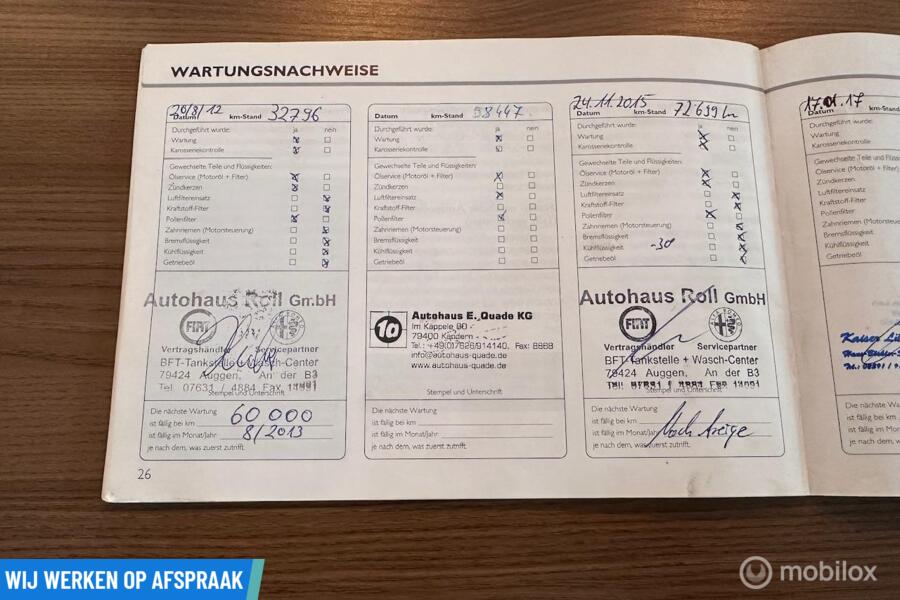 WARTUNGSNACHWEISE
20/8/12 32796
Datum km-Stand
Durchgeführt wurde: ja nein
Wartung
Karosseriekontrolle
Gewechselte Teile und Flüssigkeiten:
Ölservice (Motoröl + Filter)
Zündkerzen
Luftfiltereinsatz
Kraftstoff-Filter
Pollenfilter
Zahnriemen (Motorsteuerung)
Bremsflüssigkeit
Kühlflüssigkeit
Getriebeöl
Autohaus Roll GmbH
FIAT
Vertragshändler Servicepartner
BFT-Tankstelle + Wasch-Center
79424 Auggen, An der B3
Tel. 07631 / 4884 Fax 13091
Stempel und Unterschrift
Die nächste Wartung
ist fällig bei km 60 000
ist fällig im Monat/Jahr 8/2013
je nach dem, was zuerst zutrifft.
26
Datum km-Stand 58447
Durchgeführt wurde: ja nein
Wartung
Karosseriekontrolle
Gewechselte Teile und Flüssigkeiten:
Ölservice (Motoröl + Filter)
Zündkerzen
Luftfiltereinsatz
Kraftstoff-Filter
Pollenfilter
Zahnriemen (Motorsteuerung)
Bremsflüssigkeit
Kühlflüssigkeit
Getriebeöl
1a
Autohaus E. Quade KG
Im Käppele
79400 Kandern
Tel.: +49(0)7626/914140, Fax: 8868
info@autohaus-quade.de
www.autohaus-quade.de
Stempel und Unterschrift
Die nächste Wartung
ist fällig bei km
ist fällig im Monat/Jahr
je nach dem, was zuerst zutrifft.
24.11.2015 72699 km
Datum km-Stand
Durchgeführt wurde: ja nein
Wartung
Karosseriekontrolle
Gewechselte Teile und Flüssigkeiten:
Ölservice (Motoröl + Filter)
Zündkerzen
Luftfiltereinsatz
Kraftstoff-Filter
Pollenfilter
Zahnriemen (Motorsteuerung)
Bremsflüssigkeit
Kühlflüssigkeit -30
Getriebeöl
Autohaus Roll GmbH
FIAT
Vertragshändler Servicepartner
BFT-Tankstelle + Wasch-Center
79424 Auggen, An der B3
Tel. 07631 / 4884 Fax 13091
Stempel und Unterschrift
Die nächste Wartung
ist fällig bei km
ist fällig im Monat/Jahr Nach Anzeige
je nach dem, was zuerst zutrifft.
17.01.17
Datum km-Stand
Durchgeführt wurde:
Wartung
Karosseriekontrolle
Gewechselte Teile und Flüssigkeiten
Ölservice (Motoröl + Filter)
Zündkerzen
Luftfiltereinsatz
Kraftstoff-Filter
Pollenfilter
Zahnriemen (Motorsteuerung)
Bremsflüssigkeit
Kühlflüssigkeit
Getriebeöl
Kaiser
Die nächste Wartung
ist fällig bei km
ist fällig im Monat/Jahr
je nach dem, was
WIJ WERKEN OP AFSPRAAK
mobilox